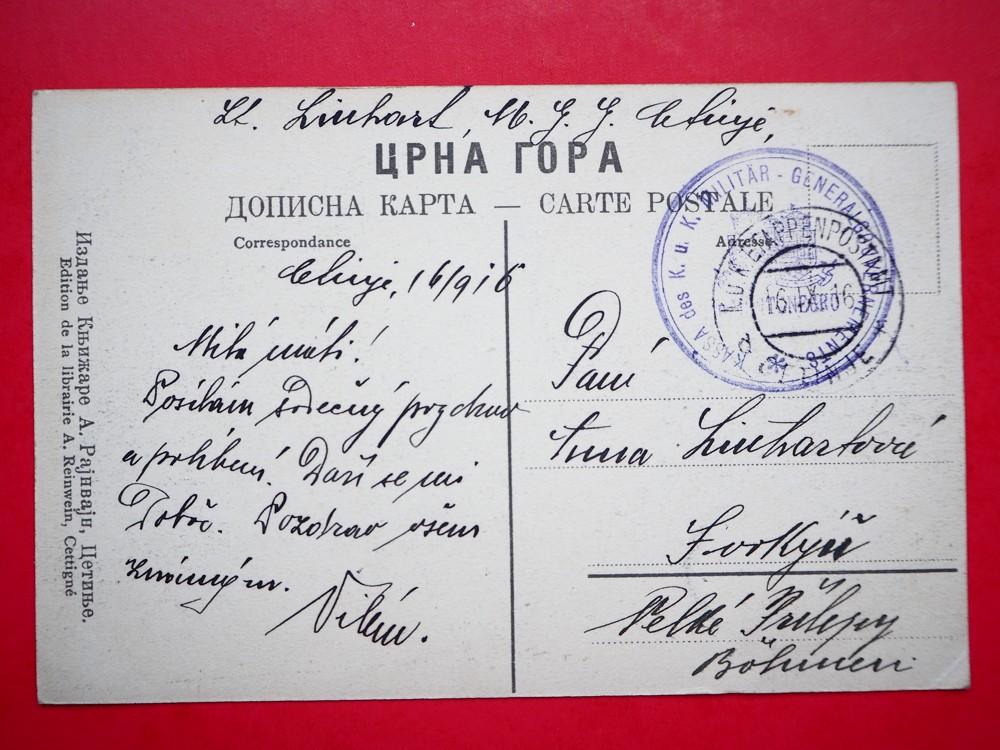 Lt. Linhart, M. G. G. Cetinje,
ЦРНА ГОРА
ДОПИСНА КАРТА — CARTE POSTALE
Correspondance
Adresse
KASSA des K. u. K. MILITÄR - GENERALGOUVERNEMENTS
K.U.K. ETAPPENPOSTAMT
16.IX.16
Cetinje, 16/9 16
Milá máti!
Posílám srdečný pozdrav
a políbení. Daří se mi
Dobře. Pozdrav všem
známým.
Vilém.
Paní
Anna Linhartová
Forkýř
Velké Přílepy
Böhmen
Издање Књижаре А. Рајнвајн, Цетиње.
Edition de la librairie A. Reinwein, Cettigné